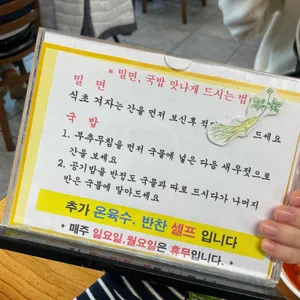 * 밀면, 국밥 맛나게 드시는 법
밀 면
식초 겨자는 간을 먼저 보신후 드세요
국 밥
1. 부추무침을 먼저 국물에 넣은 다음 새우젓으로
간을 보세요
2. 공기밥을 반정도 국물과 따로 드시다가 나머지
반은 국물에 말아드세요
추가 온육수. 반찬 셀프 입니다
* 매주 일요일,월요일은 휴무입니다. *